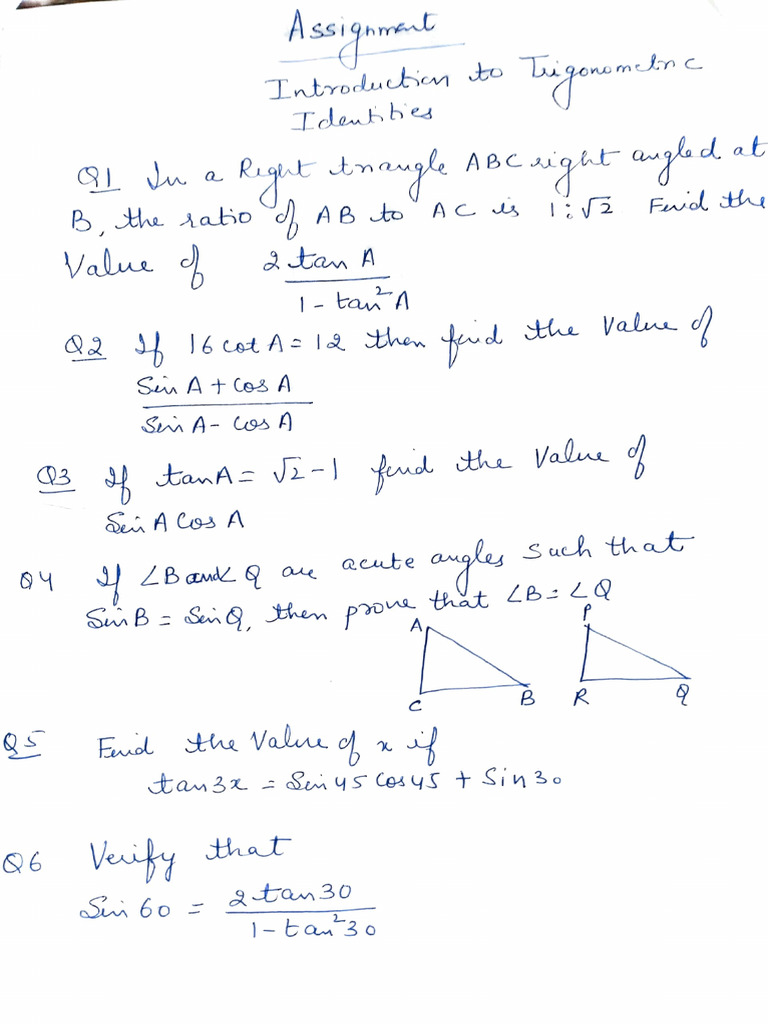 Assignment
Introduction to Trigonometric
Identities
Q1 In a Right triangle ABC right angled at
B, the ratio of AB to AC is 1:√2 Find the
Value of 2 tan A / 1 - tan² A
Q2 If 16 cot A = 12 then find the Value of
Sin A + Cos A / Sin A - Cos A
Q3 If tan A = √2 - 1 find the Value of
Sin A Cos A
Q4 If ∠B and ∠Q are acute angles such that
Sin B = Sin Q, then prove that ∠B = ∠Q
A P
C B R Q
Q5 Find the Value of x if
tan 3x = Sin 45 Cos 45 + Sin 30
Q6 Verify that
Sin 60 = 2 tan 30 / 1 - tan² 30